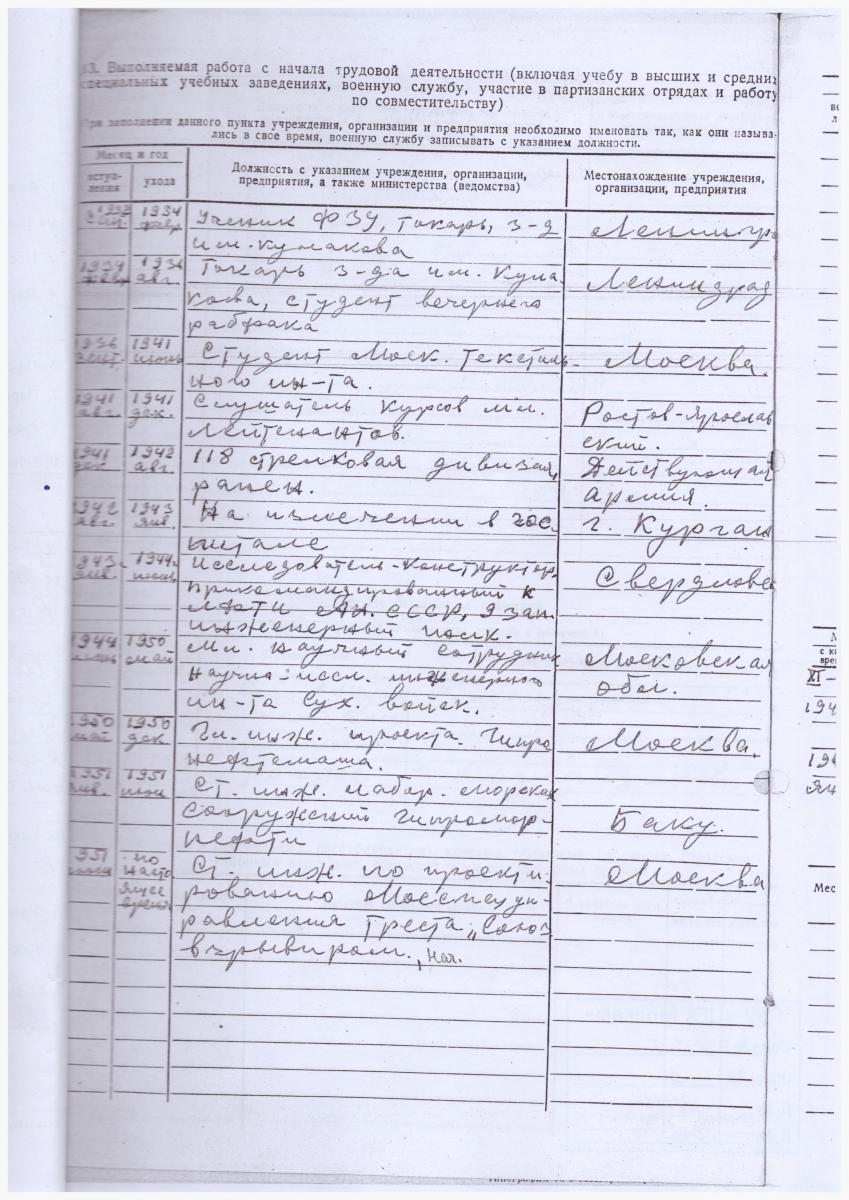 13. Выполняемая работа с начала трудовой деятельности (включая учебу в высших и средних
специальных учебных заведениях, военную службу, участие в партизанских отрядах и работу
по совместительству)
При заполнении данного пункта учреждения, организации и предприятия необходимо именовать так, как они называ-
лись в свое время, военную службу записывать с указанием должности.
Месяц и год
вступ-
ления
ухода
Должность с указанием учреждения, организации,
предприятия, а также министерства (ведомства)
Местонахождение учреждения,
организации, предприятия
1934 Ученик ФЗУ, токарь, з-д Ленингр
им. Кулакова
1934 1936 Токарь з-да им. Кула- Ленинград
авг. кова, студент вечернего
рабфака
1936 1941 Студент Моск. текстиль- Москва.
сент. июнь ного ин-та.
1941 1941 Слушатель курсов мл. Ростов-Ярослав
авг. дек. лейтенантов. ский.
1941 1942 118 стрелковая дивизия, Действующая
дек. авг. ранен. армия.
1942 1943 На излечении в гос. г. Курган
авг. янв. питале
1943 1944 Исследователь-конструктор, Свердловск
янв. июнь прикомандированный к
ЛФТИ АН. СССР, 9 зап.
инженерный полк.
1944 1950 Мл. научный сотрудник Московская
июнь май научно-иссл. инженерного обл.
ин-та Сух. войск.
1950 1950 Гл. инж. проекта. Гипро Москва.
май дек нефтемаша.
1951 1951 Ст. инж. лабор. морских
янв. июн сооружений Гипромор- Баку.
нефти
1951 по Ст. инж. по проекти- Москва
июнь насто рованию Мосспецуп-
ящее равления треста „Союз
время взрывпром., нач.
XI —
194